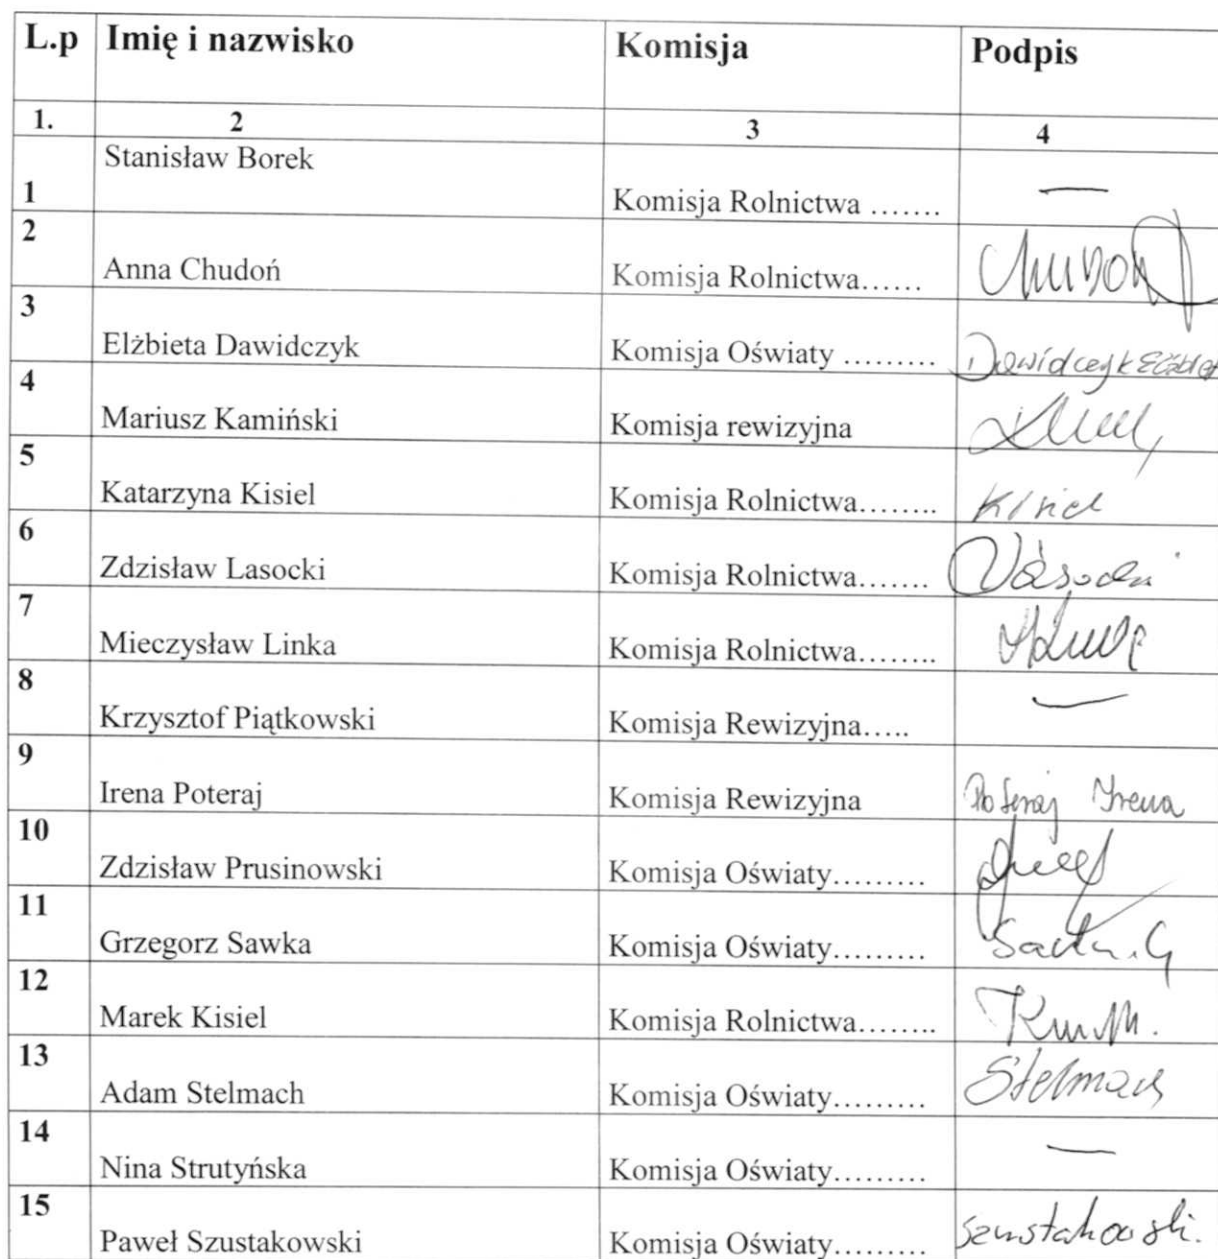 L.p Imię i nazwisko Komisja Podpis
1. 2 3 4
Stanisław Borek
1 Komisja Rolnictwa ....... —
2
Anna Chudoń Komisja Rolnictwa...... Chudoń
3
Elżbieta Dawidczyk Komisja Oświaty ......... Dawidczyk Elżbieta
4
Mariusz Kamiński Komisja rewizyjna
5
Katarzyna Kisiel Komisja Rolnictwa........ Kisiel
6
Zdzisław Lasocki Komisja Rolnictwa....... Lasocki
7
Mieczysław Linka Komisja Rolnictwa........
8
Krzysztof Piątkowski Komisja Rewizyjna..... —
9
Irena Poteraj Komisja Rewizyjna Poteraj Irena
10
Zdzisław Prusinowski Komisja Oświaty.........
11
Grzegorz Sawka Komisja Oświaty......... Sawka G
12
Marek Kisiel Komisja Rolnictwa........
13
Adam Stelmach Komisja Oświaty......... Stelmach
14
Nina Strutyńska Komisja Oświaty......... —
15
Paweł Szustakowski Komisja Oświaty......... Szustakowski.